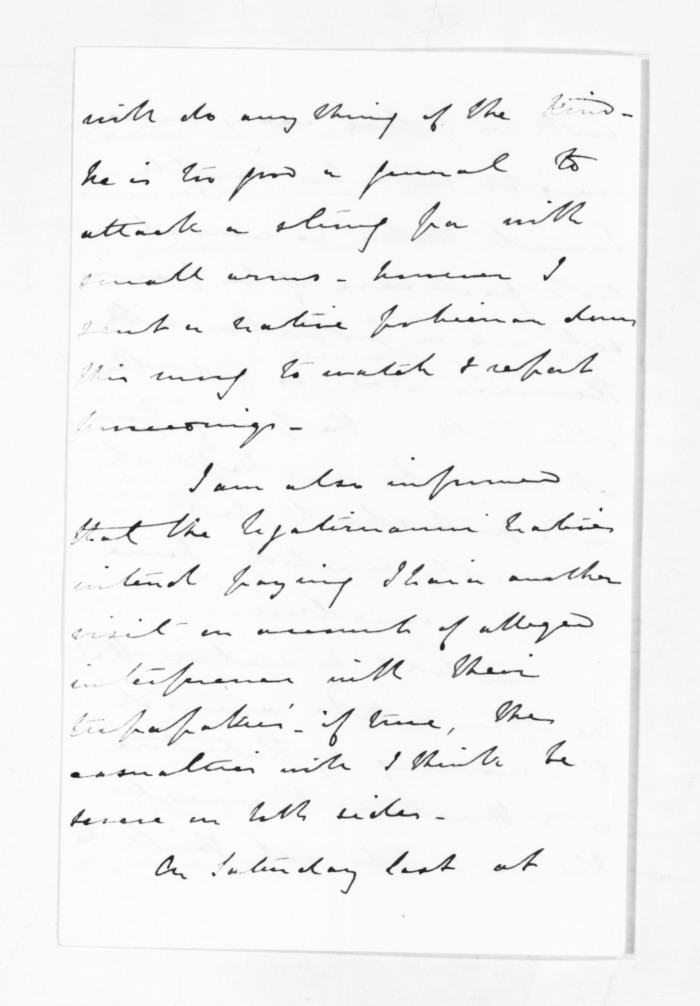 will do any thing of the kind -
he is too good a general to
attack a strong pa with
small arms - however I
sent a native policeman down
this morng to watch & report
proceedings -
I am also informed
that the Ngatiruanui natives
intend paying Ihaia another
visit on account of alleged
interference with their
- if true, the
casualties will I think be
severe on both sides -
On Saturday last at